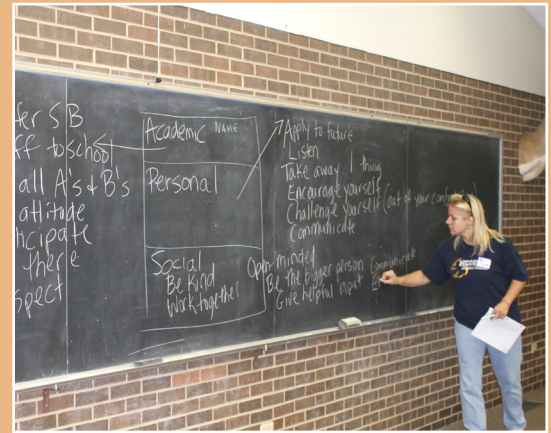 fer SB
ff to school
all A's & B's
attitude
ticipate
there
spect
Academic NAME
Personal
Social
Be kind
Work together
Apply to future
Listen
Take away 1 thing
Encourage yourself
Challenge yourself (out of your
Communicate
Open-minded
Be the bigger person Communicate
Give helpful input E